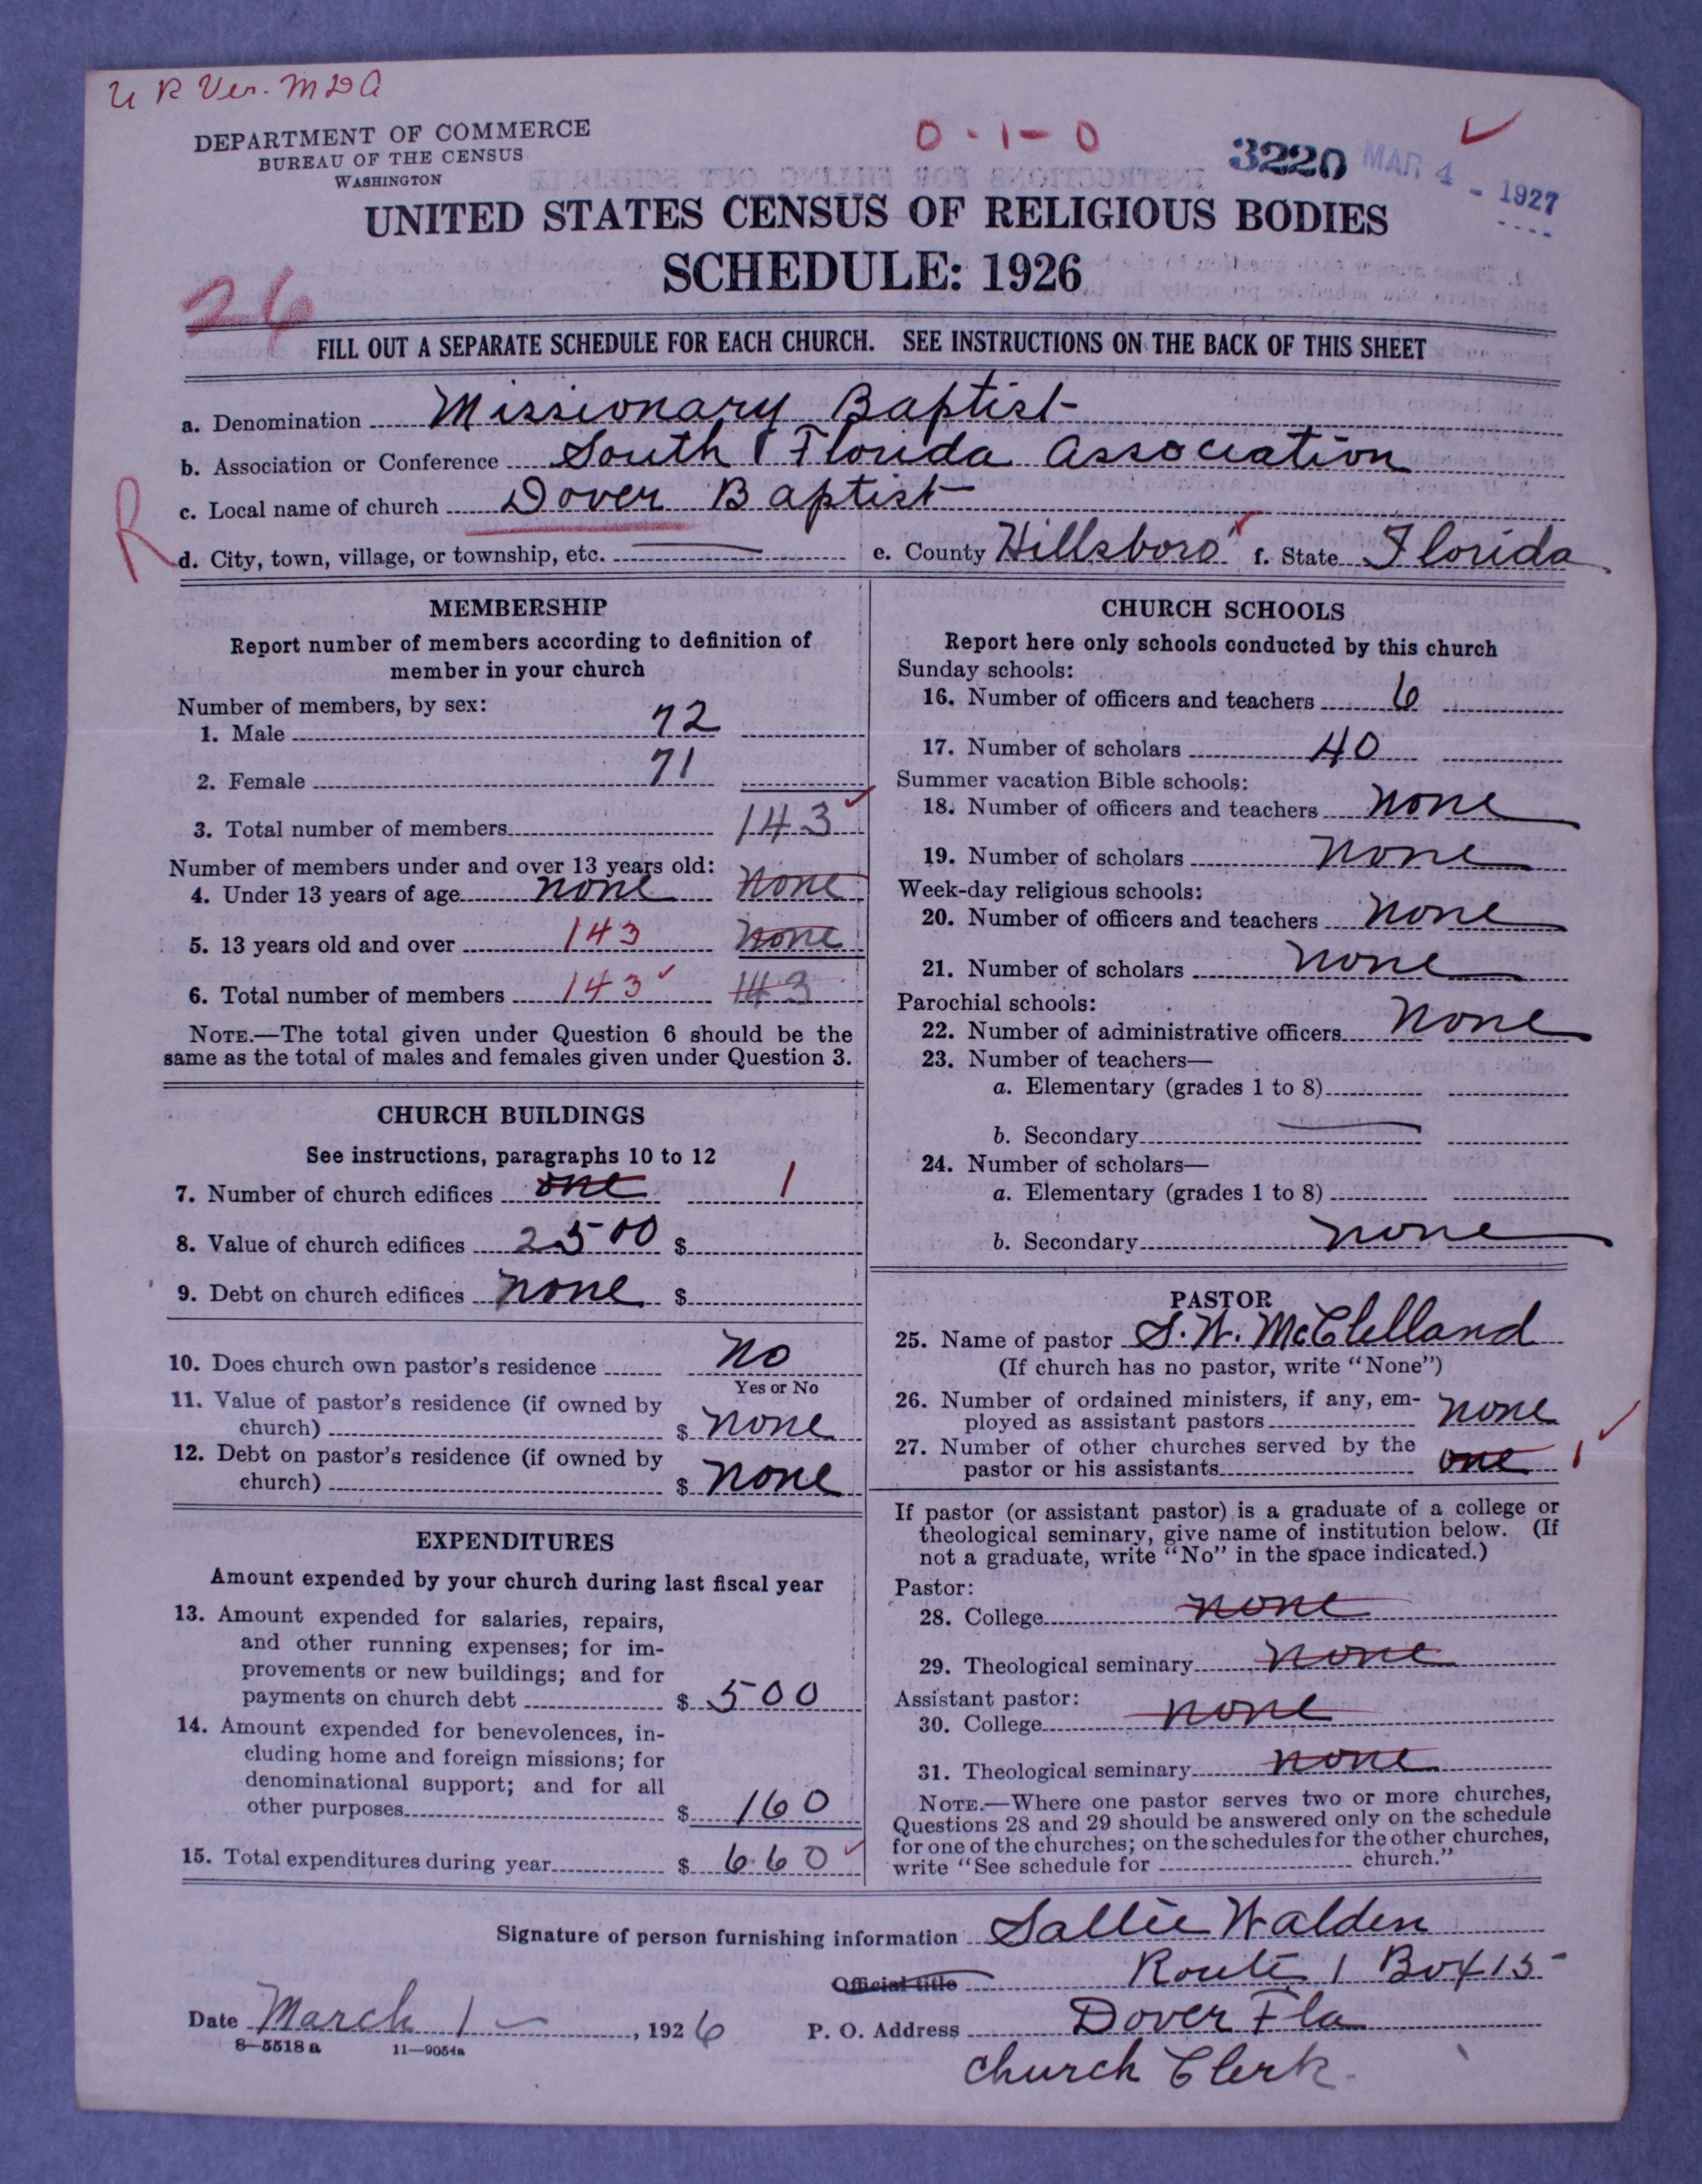 U R Ver. MDA
DEPARTMENT OF COMMERCE
BUREAU OF THE CENSUS
WASHINGTON
0-1-0
3220
MAR 4 - 1927
UNITED STATES CENSUS OF RELIGIOUS BODIES
SCHEDULE: 1926
26
FILL OUT A SEPARATE SCHEDULE FOR EACH CHURCH. SEE INSTRUCTIONS ON THE BACK OF THIS SHEET
a. Denomination Missionary Baptist
b. Association or Conference South Florida Association
c. Local name of church Dover Baptist
R
d. City, town, village, or township, etc. e. County Hillsboro f. State Florida
MEMBERSHIP
Report number of members according to definition of
member in your church
Number of members, by sex:
1. Male 72
2. Female 71
3. Total number of members 143
Number of members under and over 13 years old:
4. Under 13 years of age none none
5. 13 years old and over 143 none
6. Total number of members 143 143
NOTE.—The total given under Question 6 should be the
same as the total of males and females given under Question 3.
CHURCH BUILDINGS
See instructions, paragraphs 10 to 12
7. Number of church edifices one 1
8. Value of church edifices 2500 $
9. Debt on church edifices none $
10. Does church own pastor's residence No
Yes or No
11. Value of pastor's residence (if owned by
church) $ none
12. Debt on pastor's residence (if owned by
church) $ none
EXPENDITURES
Amount expended by your church during last fiscal year
13. Amount expended for salaries, repairs,
and other running expenses; for im-
provements or new buildings; and for
payments on church debt $ 500
14. Amount expended for benevolences, in-
cluding home and foreign missions; for
denominational support; and for all
other purposes $ 160
15. Total expenditures during year $ 660
CHURCH SCHOOLS
Report here only schools conducted by this church
Sunday schools:
16. Number of officers and teachers 6
17. Number of scholars 40
Summer vacation Bible schools:
18. Number of officers and teachers none
19. Number of scholars none
Week-day religious schools:
20. Number of officers and teachers none
21. Number of scholars none
Parochial schools:
22. Number of administrative officers none
23. Number of teachers—
a. Elementary (grades 1 to 8)
b. Secondary
24. Number of scholars—
a. Elementary (grades 1 to 8)
b. Secondary none
PASTOR
25. Name of pastor S. W. McClelland
(If church has no pastor, write "None")
26. Number of ordained ministers, if any, em-
ployed as assistant pastors none
27. Number of other churches served by the
pastor or his assistants one 1
If pastor (or assistant pastor) is a graduate of a college or
theological seminary, give name of institution below. (If
not a graduate, write "No" in the space indicated.)
Pastor:
28. College none
29. Theological seminary none
Assistant pastor:
30. College none
31. Theological seminary none
NOTE.—Where one pastor serves two or more churches,
Questions 28 and 29 should be answered only on the schedule
for one of the churches; on the schedules for the other churches,
write "See schedule for church."
Signature of person furnishing information Sallie Walden
Official title Route 1 Box 15
Date March 1 , 1926 P. O. Address Dover Fla
8—5518 a 11—9054a
Church Clerk.